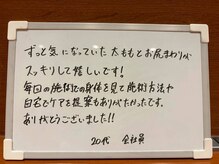 ずっと気になっていた太ももとお尻まわりが
スッキリして嬉しいです!
毎回の施術での身体を見て施術方法や
自宅でケアを提案もありがたかったです。
ありがとうございました!!
20代 会社員